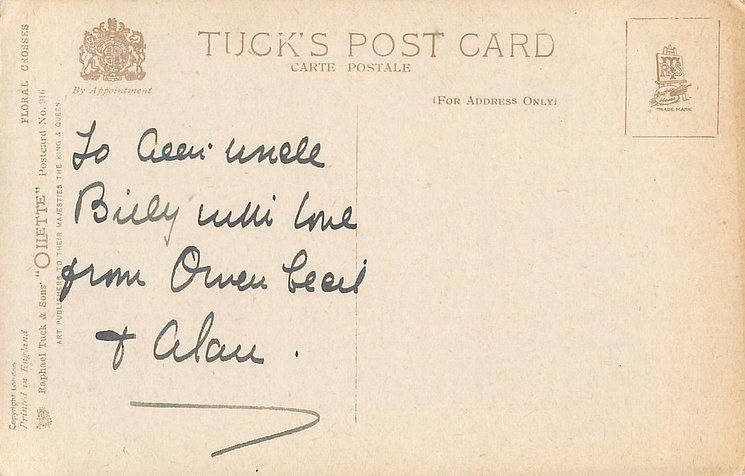 TUCK'S POST CARD
CARTE POSTALE
By Appointment
(FOR ADDRESS ONLY)
TRADE MARK
To dear uncle
Billy with love
from Owen Cecil
+ Alan .
FLORAL CROSSES
Raphael Tuck & Sons' "OILETTE" Postcard No. 916
ART PUBLISHERS TO THEIR MAJESTIES THE KING & QUEEN.
Copyright London
Printed in England